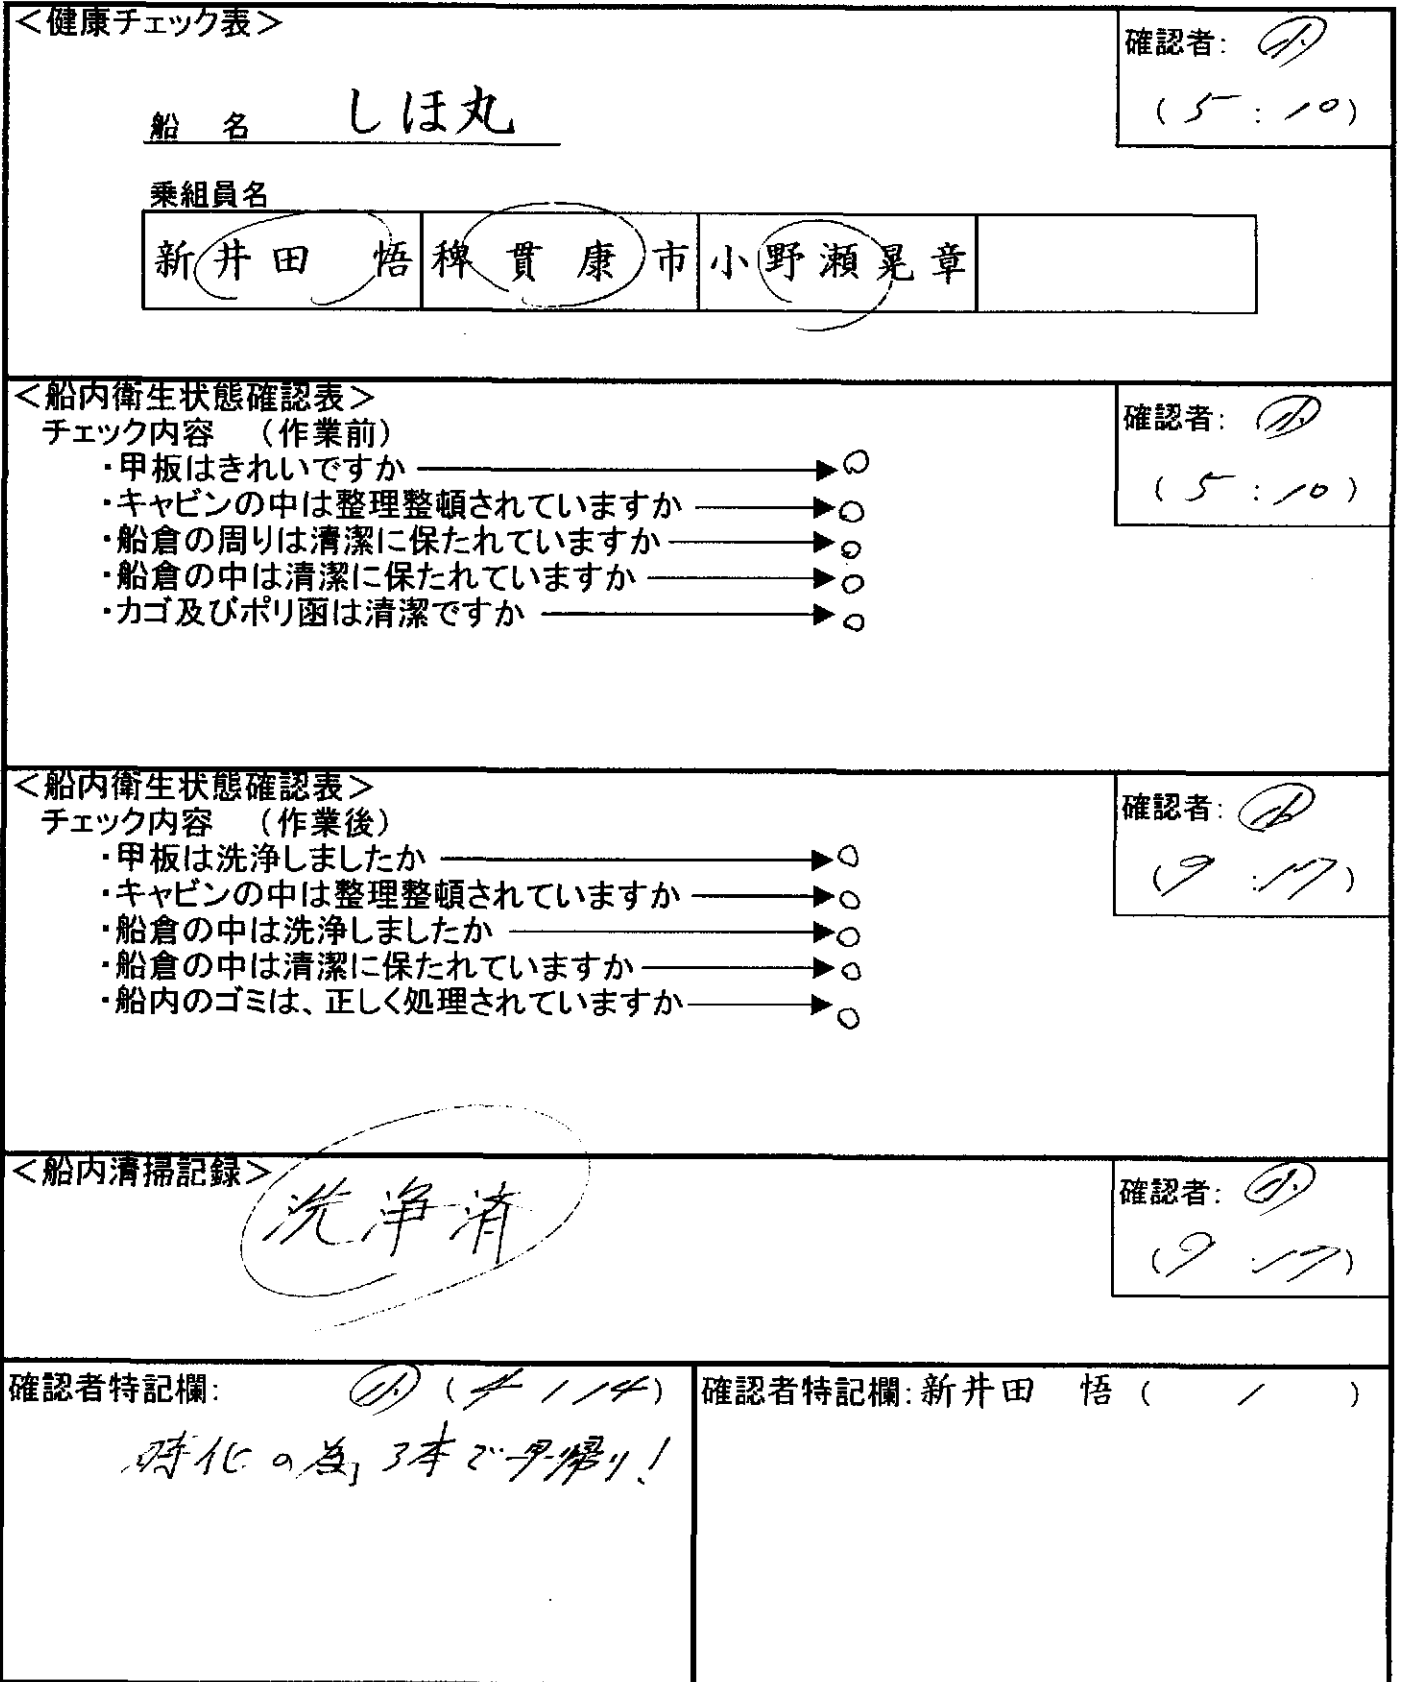 ＜健康チェック表＞
確認者: 小
(5:10)
船　名　しほ丸
乗組員名
新井田　悟　稗貫康市　小野瀬晃章
＜船内衛生状態確認表＞
確認者: 小
(5:10)
チェック内容　（作業前）
・甲板はきれいですか → ○
・キャビンの中は整理整頓されていますか → ○
・船倉の周りは清潔に保たれていますか → ○
・船倉の中は清潔に保たれていますか → ○
・カゴ及びポリ函は清潔ですか → ○
＜船内衛生状態確認表＞
確認者: 小
(9:17)
チェック内容　（作業後）
・甲板は洗浄しましたか → ○
・キャビンの中は整理整頓されていますか → ○
・船倉の中は洗浄しましたか → ○
・船倉の中は清潔に保たれていますか → ○
・船内のゴミは、正しく処理されていますか → ○
＜船内清掃記録＞
洗浄済
確認者: 小
(9:17)
確認者特記欄: 小 (4/14)
時化の為、3本で早帰り!
確認者特記欄:新井田　悟（　/　）